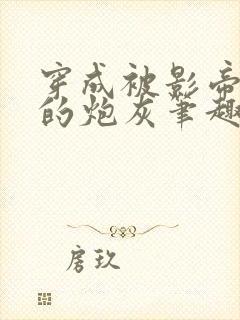 穿成被影帝
的炮灰笔趣
房玖